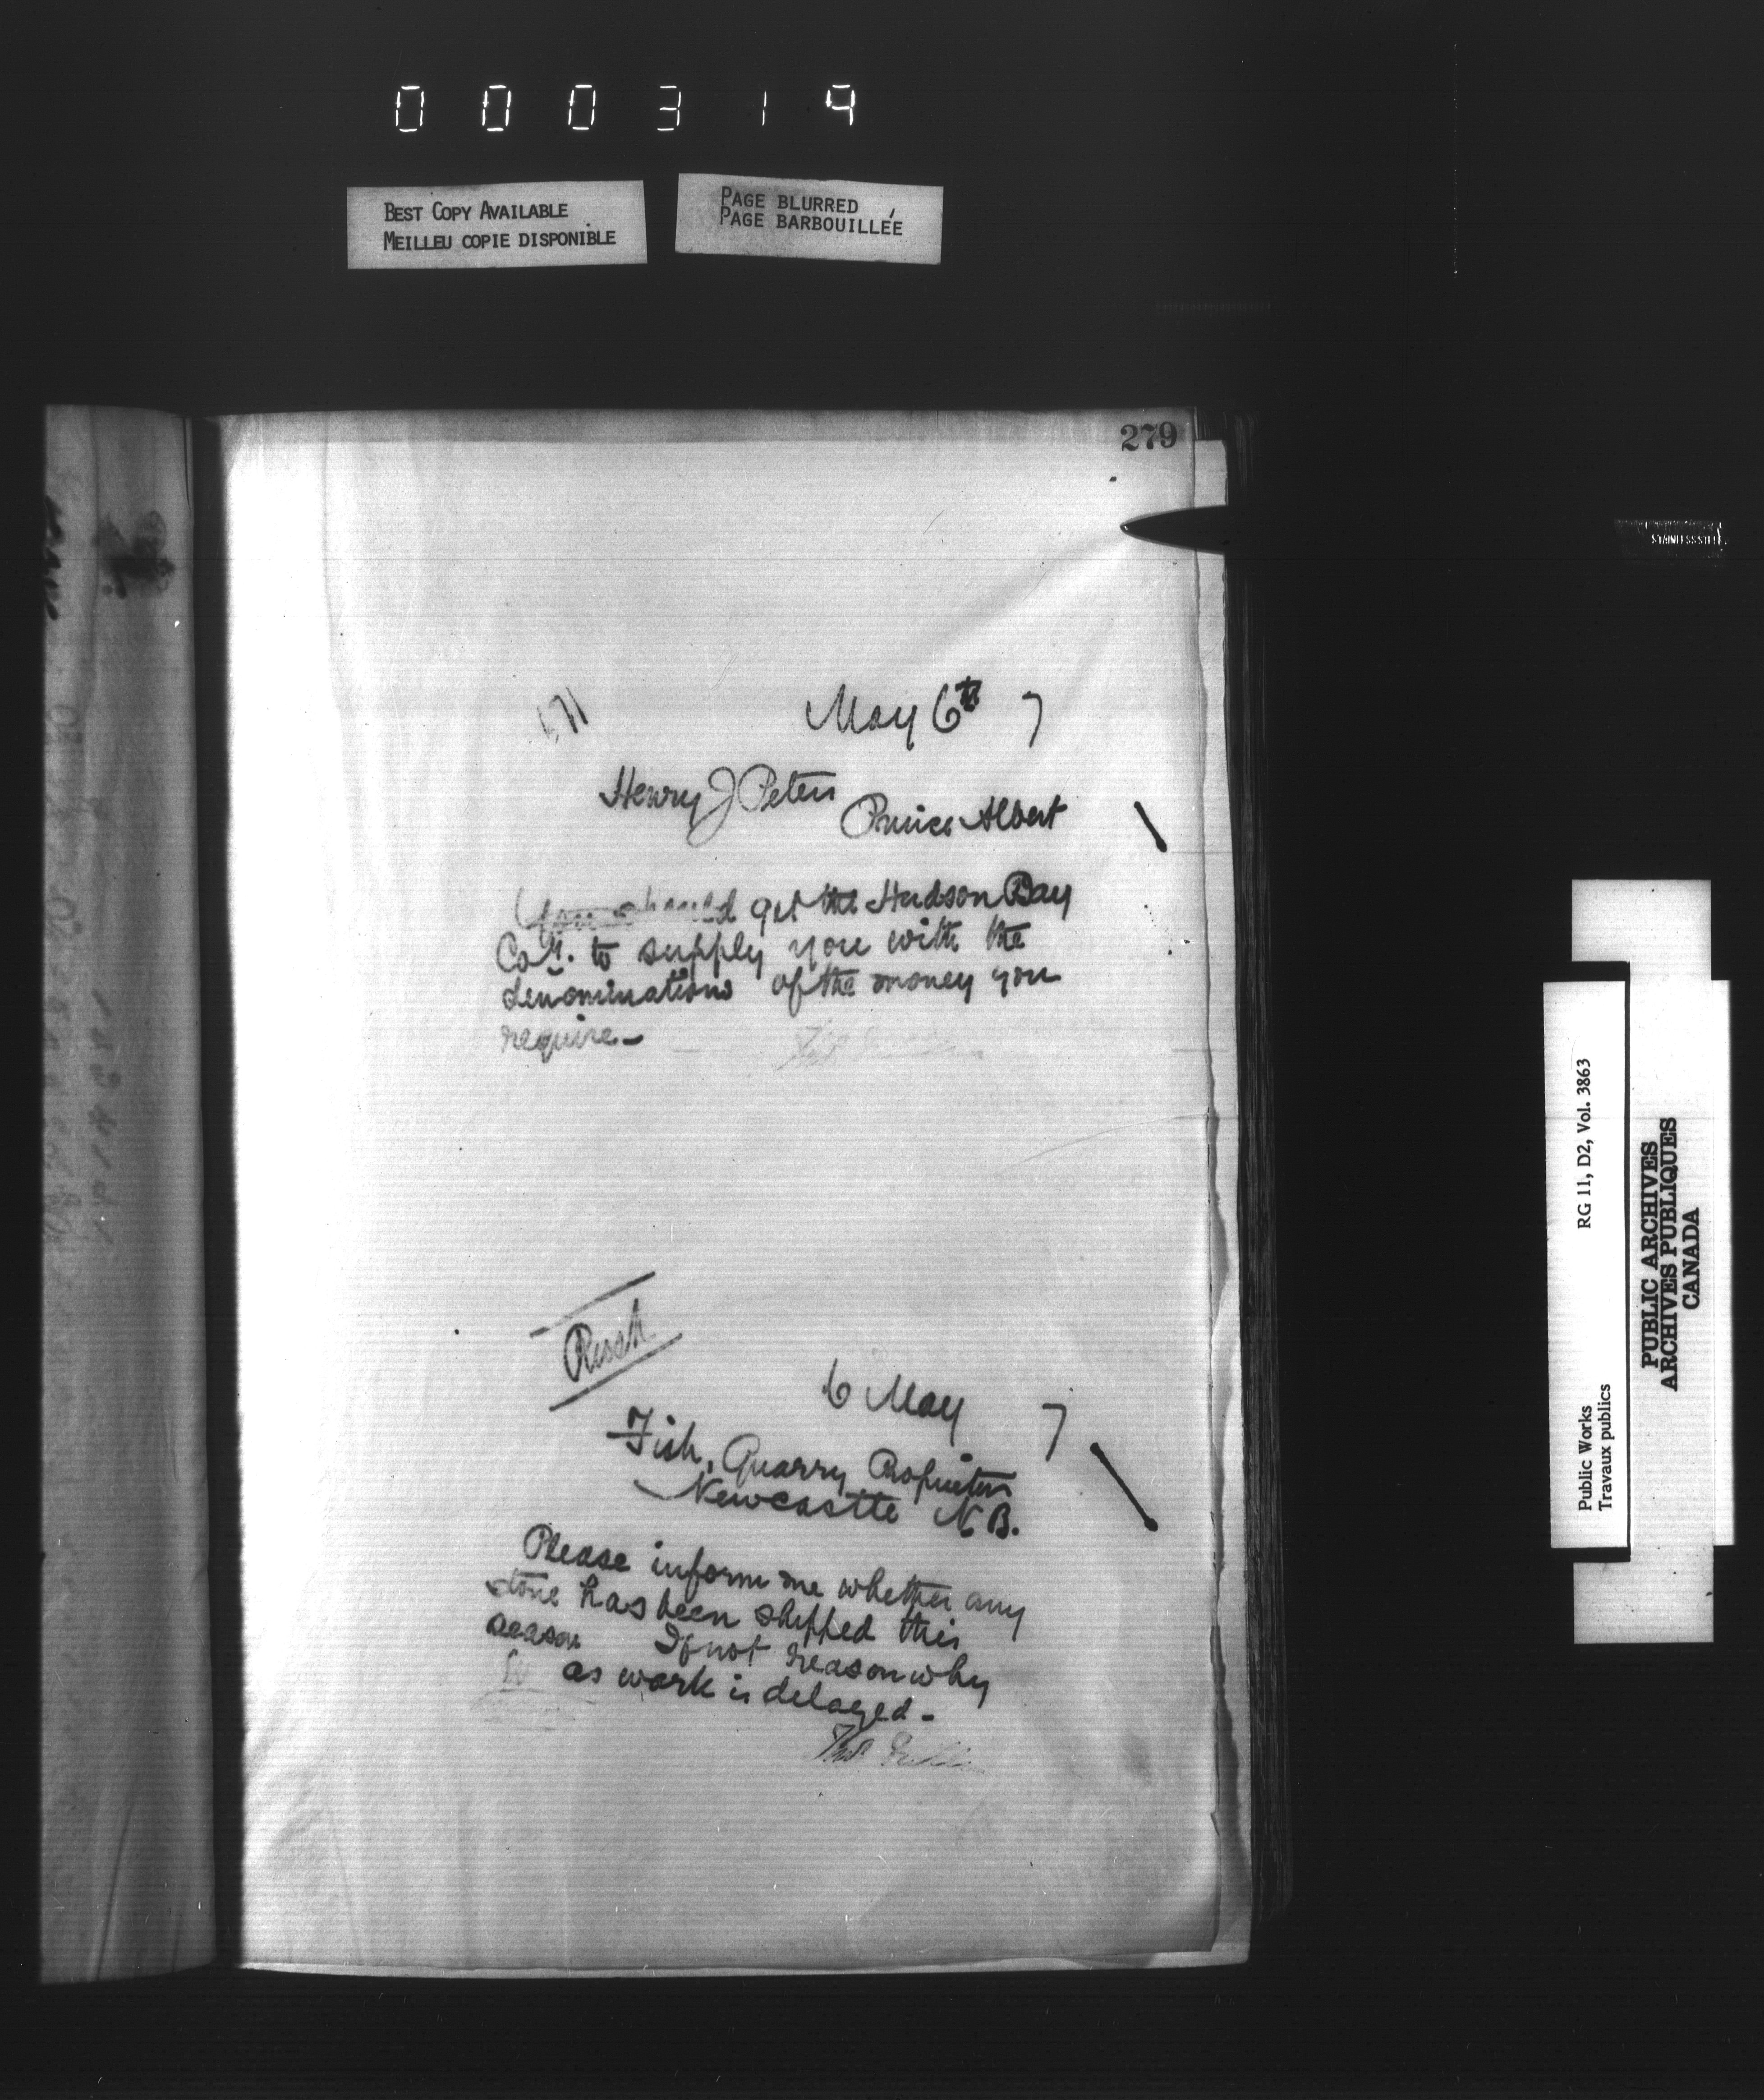 000319
BEST COPY AVAILABLE
MEILLEU COPIE DISPONIBLE
PAGE BLURRED
PAGE BARBOUILLÉE
279
May 6th 7
Henry J Peters
Prince Albert
You should get the Hudson Bay
Coy. to supply you with the
denominations of the money you
require -
Rush
6 May 7
Fish, Quarry Proprietor
Newcastle N.B.
Please inform me whether any
stone has been shipped this
season If not reason why
as work is delayed -
Thos
STAINLESS STEEL
RG 11, D2, Vol. 3863
Public Works
Travaux publics
PUBLIC ARCHIVES
ARCHIVES PUBLIQUES
CANADA